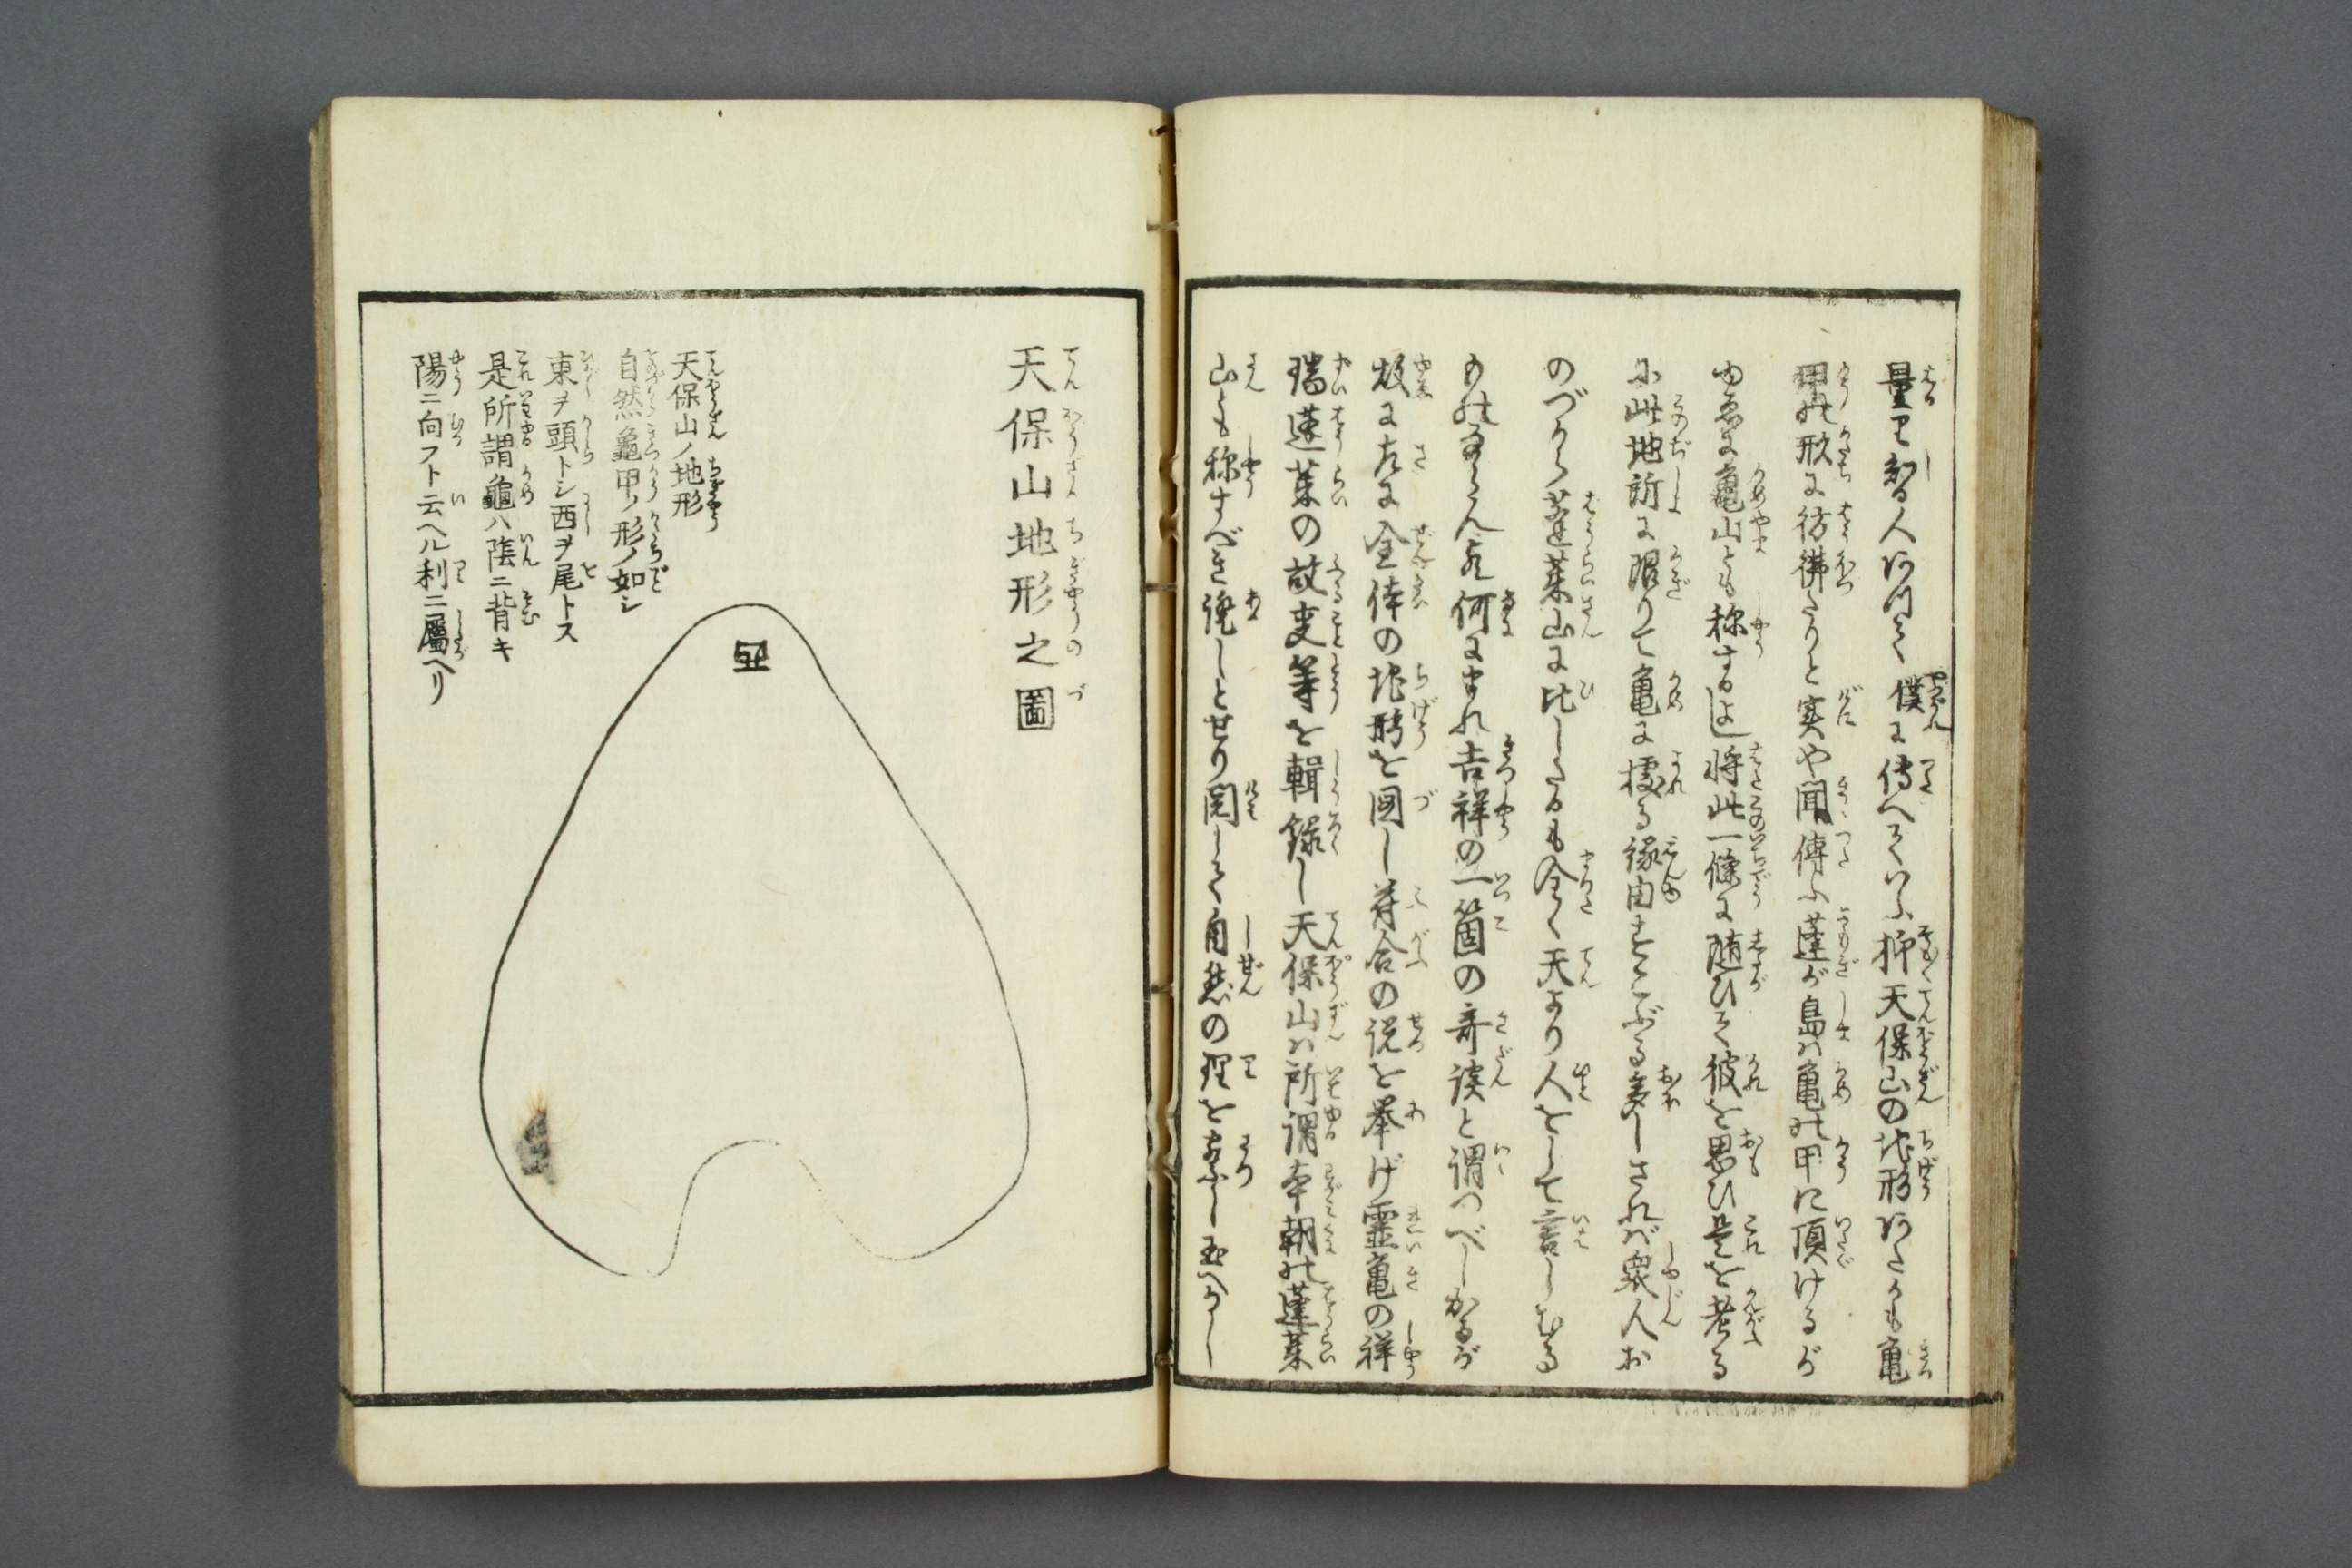 量り知る人ありて僕に傳へていふ抑天保山の地形あたかも亀
甲の形に彷彿たりと実や聞傳ふ蓬が島は亀の甲に頂けるが
ゆゑに亀山とも称するよし将此一條に随ひて彼を思ひ是を考る
に此地所に限りて亀に據る縁由すこぶる多しされば衆人お
のづから蓬莱山に比したるも全く天より人をして言しむる
ものならん兎何にまれ吉祥の一箇の奇談と謂つべしかるが
故に左に全体の地形を図し符合の説を挙げ霊亀の祥
瑞蓬莱の故事等を輯録し天保山は所謂本朝の蓬莱
山とも称すべき証しとせり閲して自然の理を察し玉へかし
天保山地形之圖
天保山ノ地形
自然龜甲ノ形ノ如シ
東ヲ頭トシ西ヲ尾トス
是所謂龜ハ陰ニ背キ
陽ニ向フト云ヘル利ニ屬ヘリ